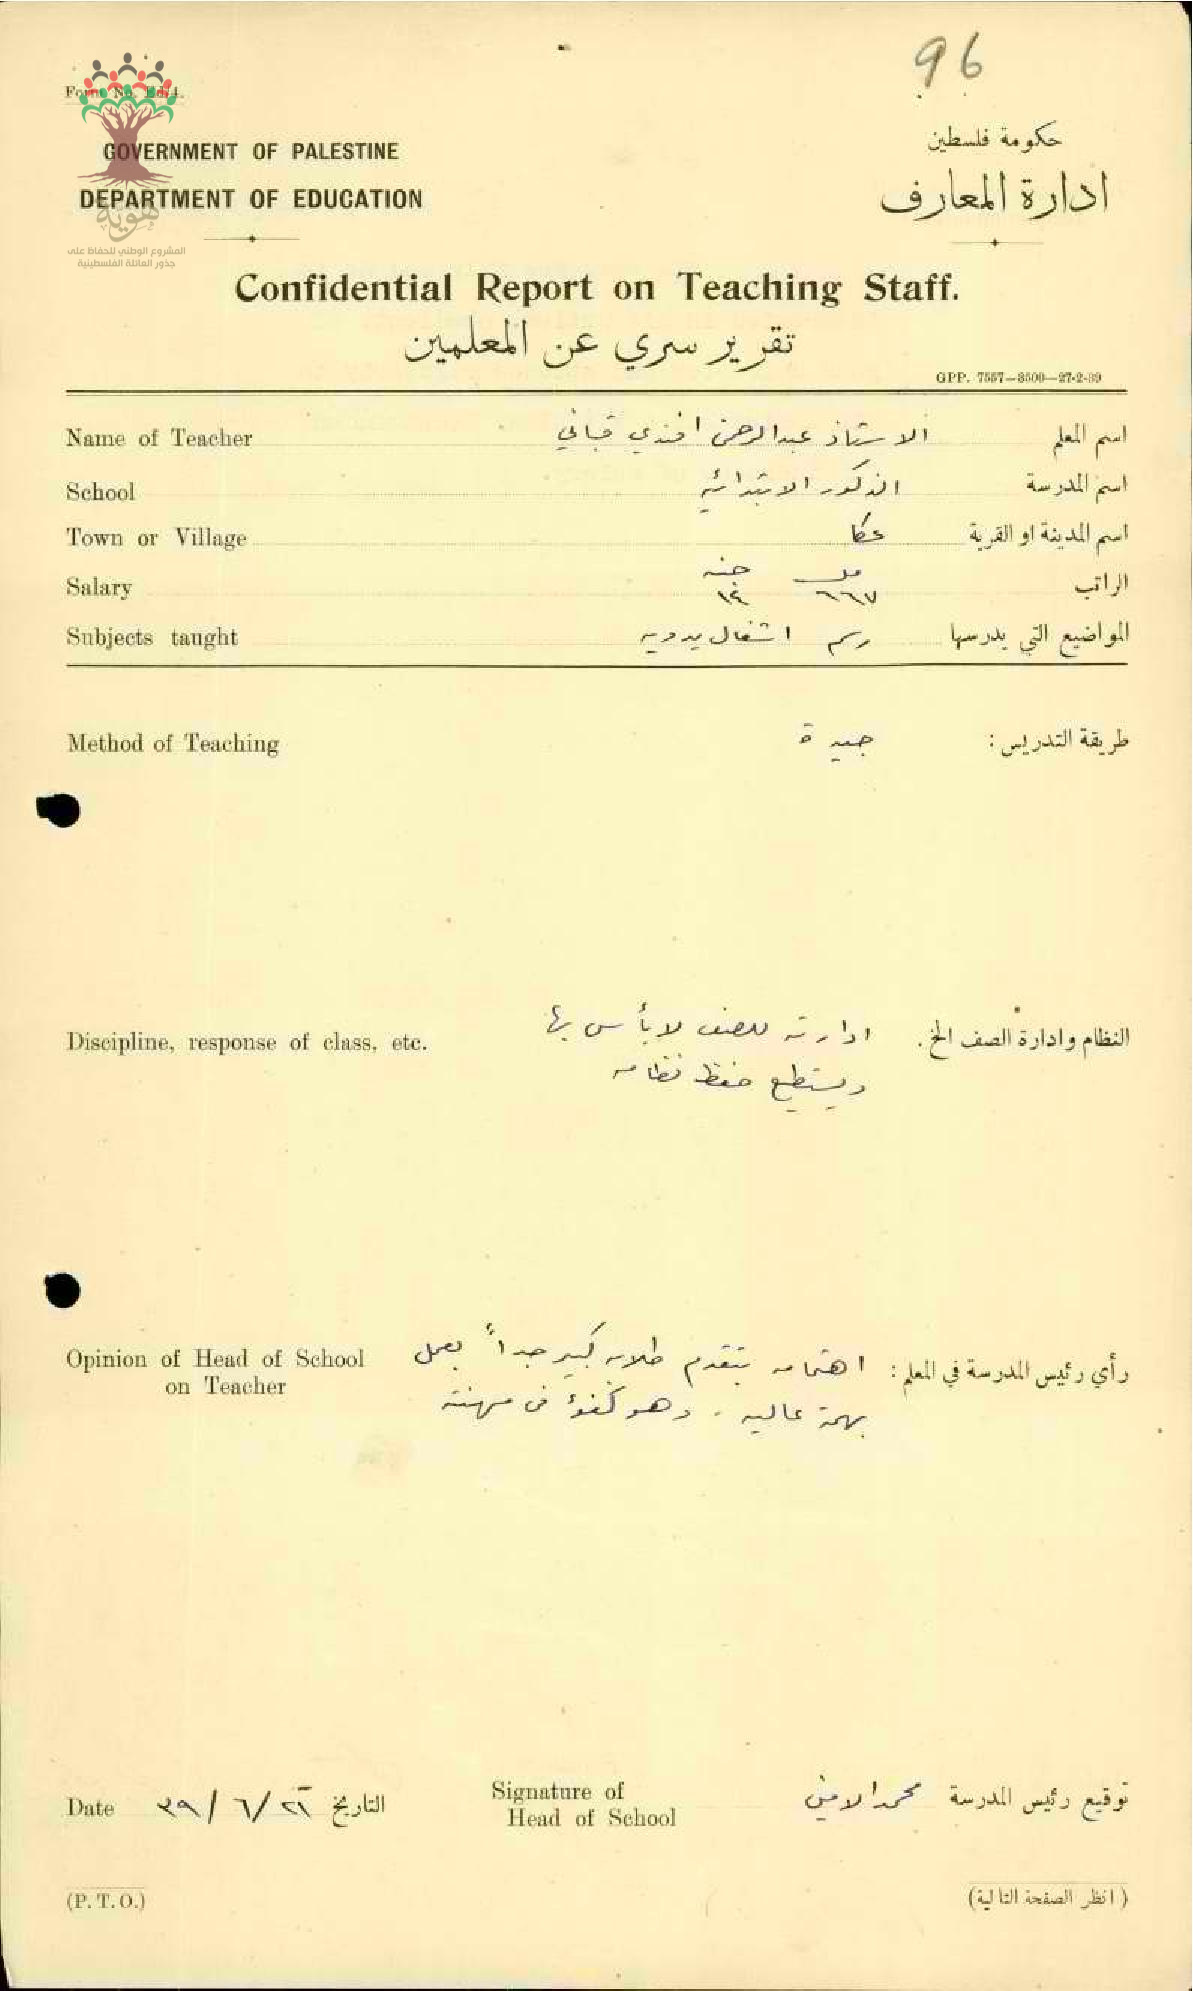 96
Form No. Ed/4.
GOVERNMENT OF PALESTINE
DEPARTMENT OF EDUCATION
حكومة فلسطين
ادارة المعارف
هوية
المشروع الوطني للحفاظ على
جذور العائلة الفلسطينية
Confidential Report on Teaching Staff.
تقرير سري عن المعلمين
GPP. 7557—3500—27-2-39
Name of Teacher الاستاذ عبدالرحمن افندي قباني اسم المعلم
School الذكور الابتدائيه اسم المدرسة
Town or Village عكا اسم المدينة او القرية
مل جنيه
Salary ٦٦٧ ١٢ الراتب
Subjects taught رسم اشغال يدويه المواضيع التي يدرسها
Method of Teaching جيدة طريقة التدريس :
Discipline, response of class, etc. ادارته للصف لا بأس بها النظام وادارة الصف الخ.
ويستطيع حفظ نظامه
Opinion of Head of School اهتمامه بتقدم طلابه كبير جداً يعمل رأي رئيس المدرسة في المعلم :
on Teacher بهمة عاليه . وهو كفؤ في مهنته
Date ٣٩/٦/٢٦ التاريخ Signature of محمد الامين توقيع رئيس المدرسة
Head of School
(P. T. O.) (انظر الصفحة التالية)